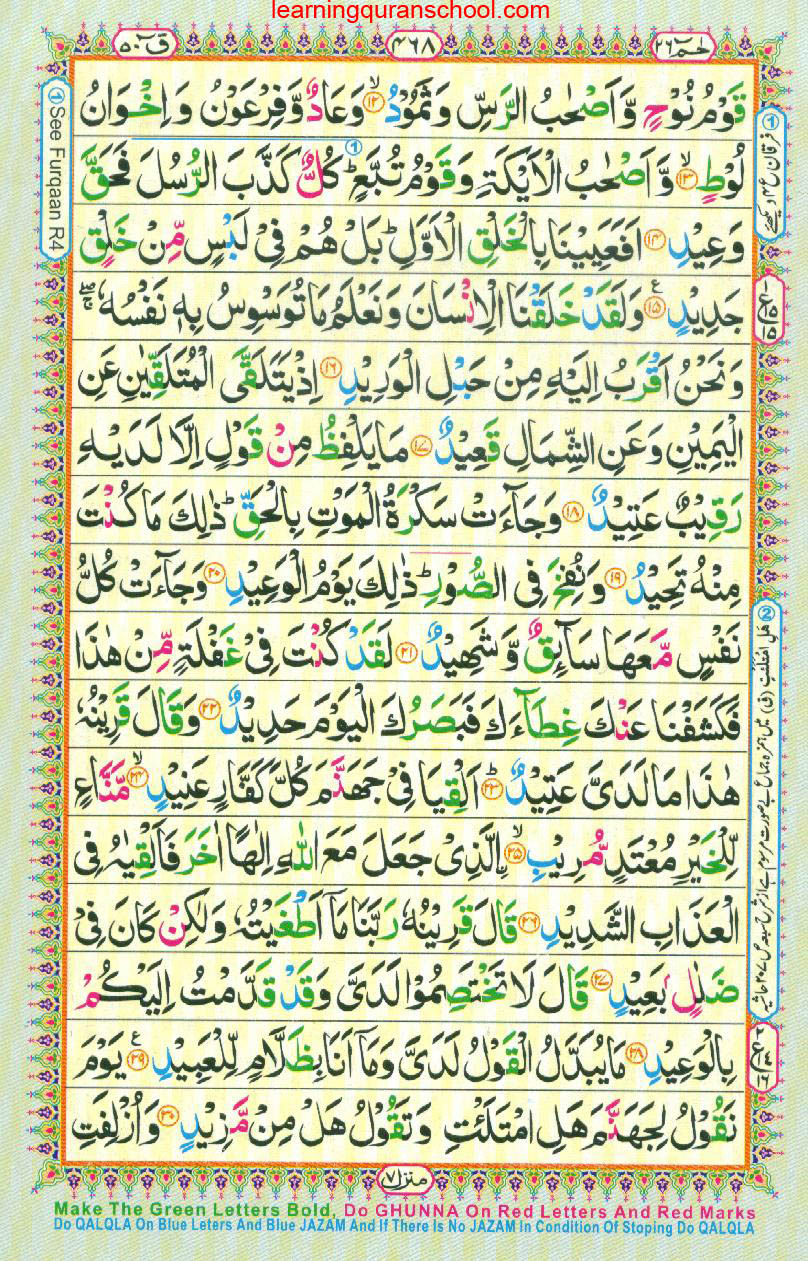 learningquranschool.com
حٰمٓ ٢٦
٤٦٨
قٓ ٥٠
قَوْمُ نُوْحٍ وَّاَصْحٰبُ الرَّسِّ وَثَمُوْدُ ۙ﴿۱۲﴾ وَعَادٌ وَّفِرْعَوْنُ وَاِخْوَانُ
لُوْطٍ ۙ﴿۱۳﴾ وَّاَصْحٰبُ الْاَيْكَةِ وَقَوْمُ تُبَّعٍ ؕ كُلٌّ كَذَّبَ الرُّسُلَ فَحَقَّ
وَعِيْدِ ﴿۱۴﴾ اَفَعَيِيْنَا بِالْخَلْقِ الْاَوَّلِ ؕ بَلْ هُمْ فِیْ لَبْسٍ مِّنْ خَلْقٍ
جَدِيْدٍ ﴿۱۵﴾ وَلَقَدْ خَلَقْنَا الْاِنْسَانَ وَنَعْلَمُ مَا تُوَسْوِسُ بِهٖ نَفْسُهٗ ۖۚ
وَنَحْنُ اَقْرَبُ اِلَيْهِ مِنْ حَبْلِ الْوَرِيْدِ ﴿۱۶﴾ اِذْ يَتَلَقَّى الْمُتَلَقِّيٰنِ عَنِ
الْيَمِيْنِ وَعَنِ الشِّمَالِ قَعِيْدٌ ﴿۱۷﴾ مَا يَلْفِظُ مِنْ قَوْلٍ اِلَّا لَدَيْهِ
رَقِيْبٌ عَتِيْدٌ ﴿۱۸﴾ وَجَآءَتْ سَكْرَةُ الْمَوْتِ بِالْحَقِّ ؕ ذٰلِكَ مَا كُنْتَ
مِنْهُ تَحِيْدُ ﴿۱۹﴾ وَنُفِخَ فِی الصُّوْرِ ؕ ذٰلِكَ يَوْمُ الْوَعِيْدِ ﴿۲۰﴾ وَجَآءَتْ كُلُّ
نَفْسٍ مَّعَهَا سَآئِقٌ وَّشَهِيْدٌ ﴿۲۱﴾ لَقَدْ كُنْتَ فِیْ غَفْلَةٍ مِّنْ هٰذَا
فَكَشَفْنَا عَنْكَ غِطَآءَكَ فَبَصَرُكَ الْيَوْمَ حَدِيْدٌ ﴿۲۲﴾ وَقَالَ قَرِيْنُهٗ
هٰذَا مَا لَدَیَّ عَتِيْدٌ ؕ﴿۲۳﴾ اَلْقِيَا فِیْ جَهَنَّمَ كُلَّ كَفَّارٍ عَنِيْدٍ ۙ﴿۲۴﴾ مَّنَّاعٍ
لِّلْخَيْرِ مُعْتَدٍ مُّرِيْبِ ۙ﴿۲۵﴾ اِۨلَّذِیْ جَعَلَ مَعَ اللّٰهِ اِلٰهًا اٰخَرَ فَاَلْقِيٰهُ فِی
الْعَذَابِ الشَّدِيْدِ ﴿۲۶﴾ قَالَ قَرِيْنُهٗ رَبَّنَا مَاۤ اَطْغَيْتُهٗ وَلٰكِنْ كَانَ فِیْ
ضَلٰلٍۭ بَعِيْدٍ ﴿۲۷﴾ قَالَ لَا تَخْتَصِمُوْا لَدَیَّ وَقَدْ قَدَّمْتُ اِلَيْكُمْ
بِالْوَعِيْدِ ﴿۲۸﴾ مَا يُبَدَّلُ الْقَوْلُ لَدَیَّ وَمَاۤ اَنَا بِظَلَّامٍ لِّلْعَبِيْدِ ﴿۲۹﴾ يَوْمَ
نَقُوْلُ لِجَهَنَّمَ هَلِ امْتَلَئْتِ وَتَقُوْلُ هَلْ مِنْ مَّزِيْدٍ ﴿۳۰﴾ وَاُزْلِفَتِ
① See Furqaan R4
منزل ٧
Make The Green Letters Bold, Do GHUNNA On Red Letters And Red Marks
Do QALQLA On Blue Leters And Blue JAZAM And If There Is No JAZAM In Condition Of Stoping Do QALQLA